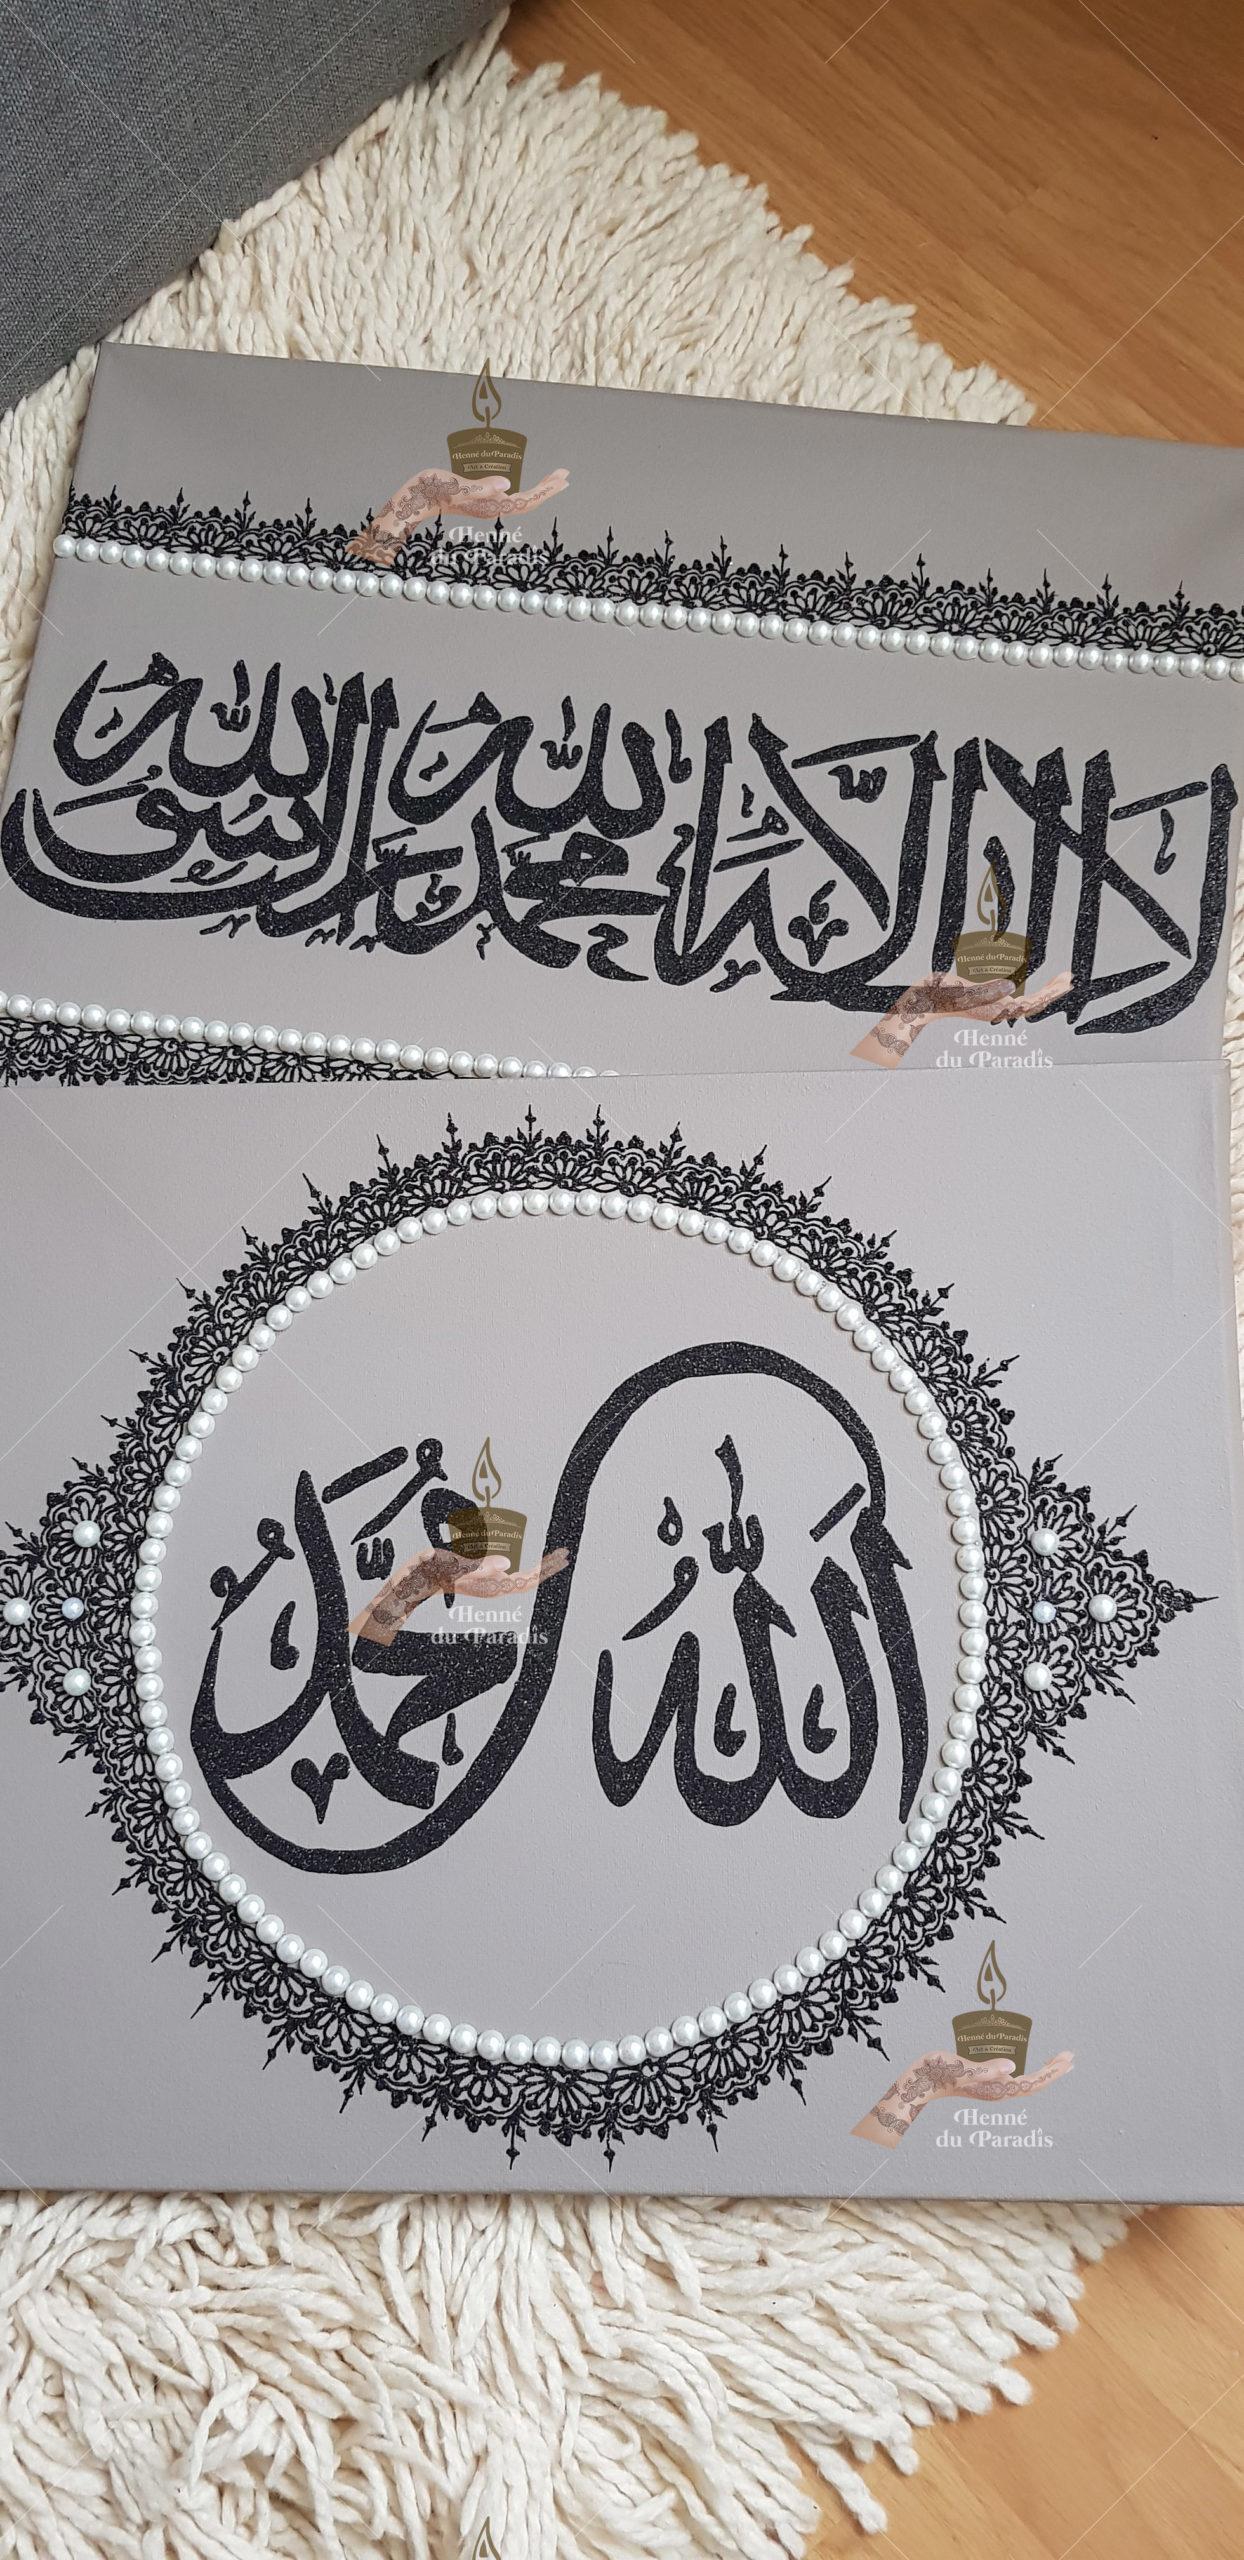 Henné du Paradis
Art & Création
Henné
du Paradis
لا إله إلا الله محمد رسول الله
Henné du Paradis
Art & Création
Henné
du Paradis
الله محمد
Henné du Paradis
Art & Création
Henné
du Paradis
Henné du Paradis
Art & Création
Henné
du Paradis